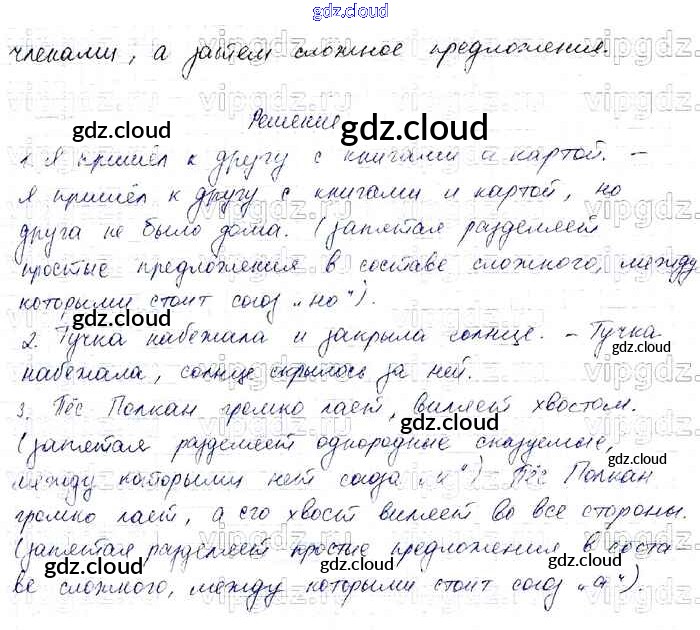 gdz.cloud
членами, а затем сложное предложения.
Решение
gdz.cloud gdz.cloud
1. Я пришёл к другу с книгами и картой. –
Я пришёл к другу с книгами и картой, но
gdz.cloud gdz.cloud
друга не было дома. (запятая разделяет
gdz.cloud
простые предложения в составе сложного, между
которыми стоит союз „но“).
gdz.cloud
2. Тучка набежала и закрыла солнце. – Тучка
gdz.cloud
набежала, солнце скрылось за ней.
3. Пёс Полкан громко лает, виляет хвостом.
(запятая разделяет однородные сказуемые,
gdz.cloud
между которыми нет союза „и“) – Пёс Полкан
громко лает, а его хвост виляет во все стороны.
gdz.cloud
(запятая разделяет простые предложения в соста
gdz.cloud
ве сложного, между которыми стоит союз „а“).
gdz.cloud